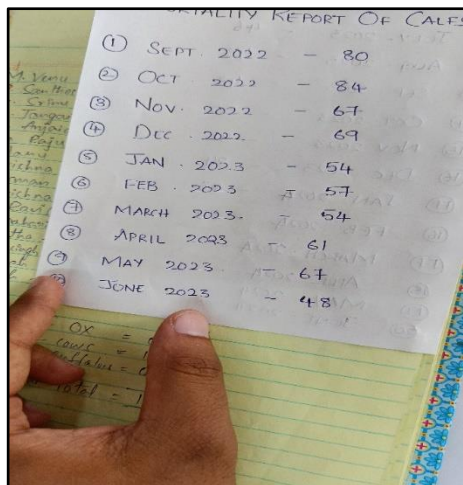 MORTALITY REPORT OF CALFS
① SEPT. 2022 - 80
② OCT 2022 - 84
③ NOV. 2022 - 67
④ DEC. 2022. - 69
⑤ JAN. 2023 - 54
⑥ FEB. 2023 - 57
⑦ MARCH 2023. 54
⑧ APRIL 2023 - 61
⑨ MAY 2023 - 67
⑩ JUNE 2023 - 48
M. Venu
Santhosh
Srinu
OX =
COWS =
Buffalus =
Total =